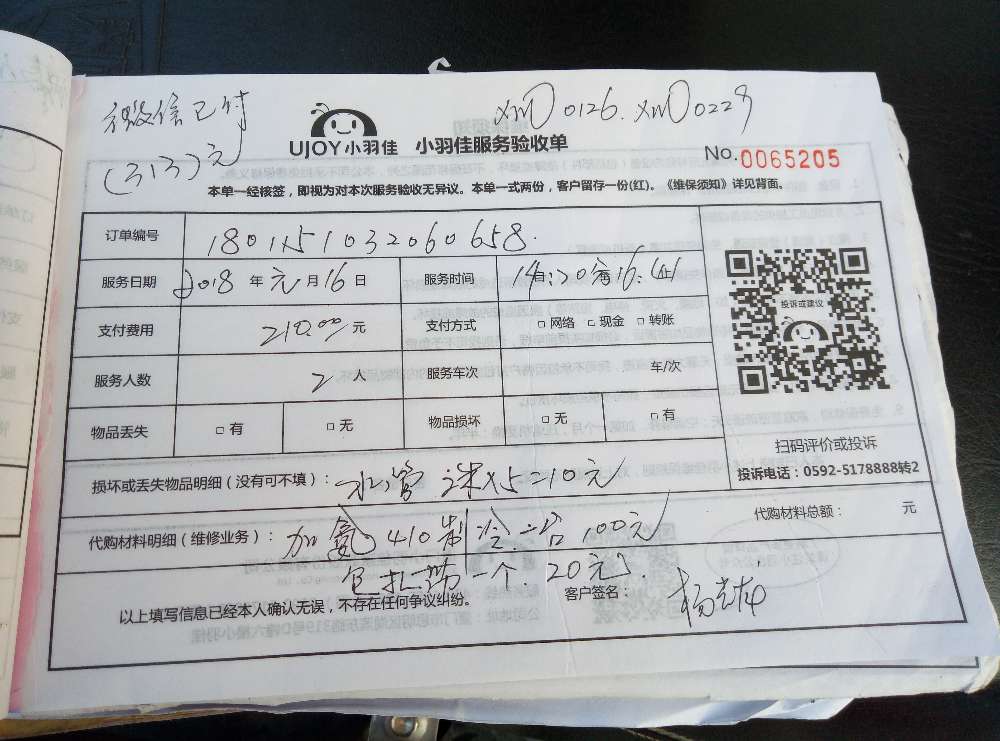 微信已付
(313)元
XM0126. XM0229
UJOY小羽佳 小羽佳服务验收单
No.0065205
本单一经核签，即视为对本次服务验收无异议。本单一式两份，客户留存一份(红)。《维保须知》详见背面。
订单编号 1801151032060658.
服务日期 2018 年 元 月 16 日 服务时间 14:30 16:
支付费用 210.00 元 支付方式 □ 网络 □ 现金 □ 转账
服务人数 2 人 服务车次 车/次
物品丢失 □ 有 □ 无 物品损坏 □ 无 □ 有
投诉或建议
扫码评价或投诉
投诉电话：0592-5178888转2
损坏或丢失物品明细（没有可不填）： 水管 米x5=10元
代购材料明细（维修业务）： 加氟410制冷 二台 100元
代购材料总额： 元
包扎带一个. 20元
以上填写信息已经本人确认无误，不存在任何争议纠纷。 客户签名：